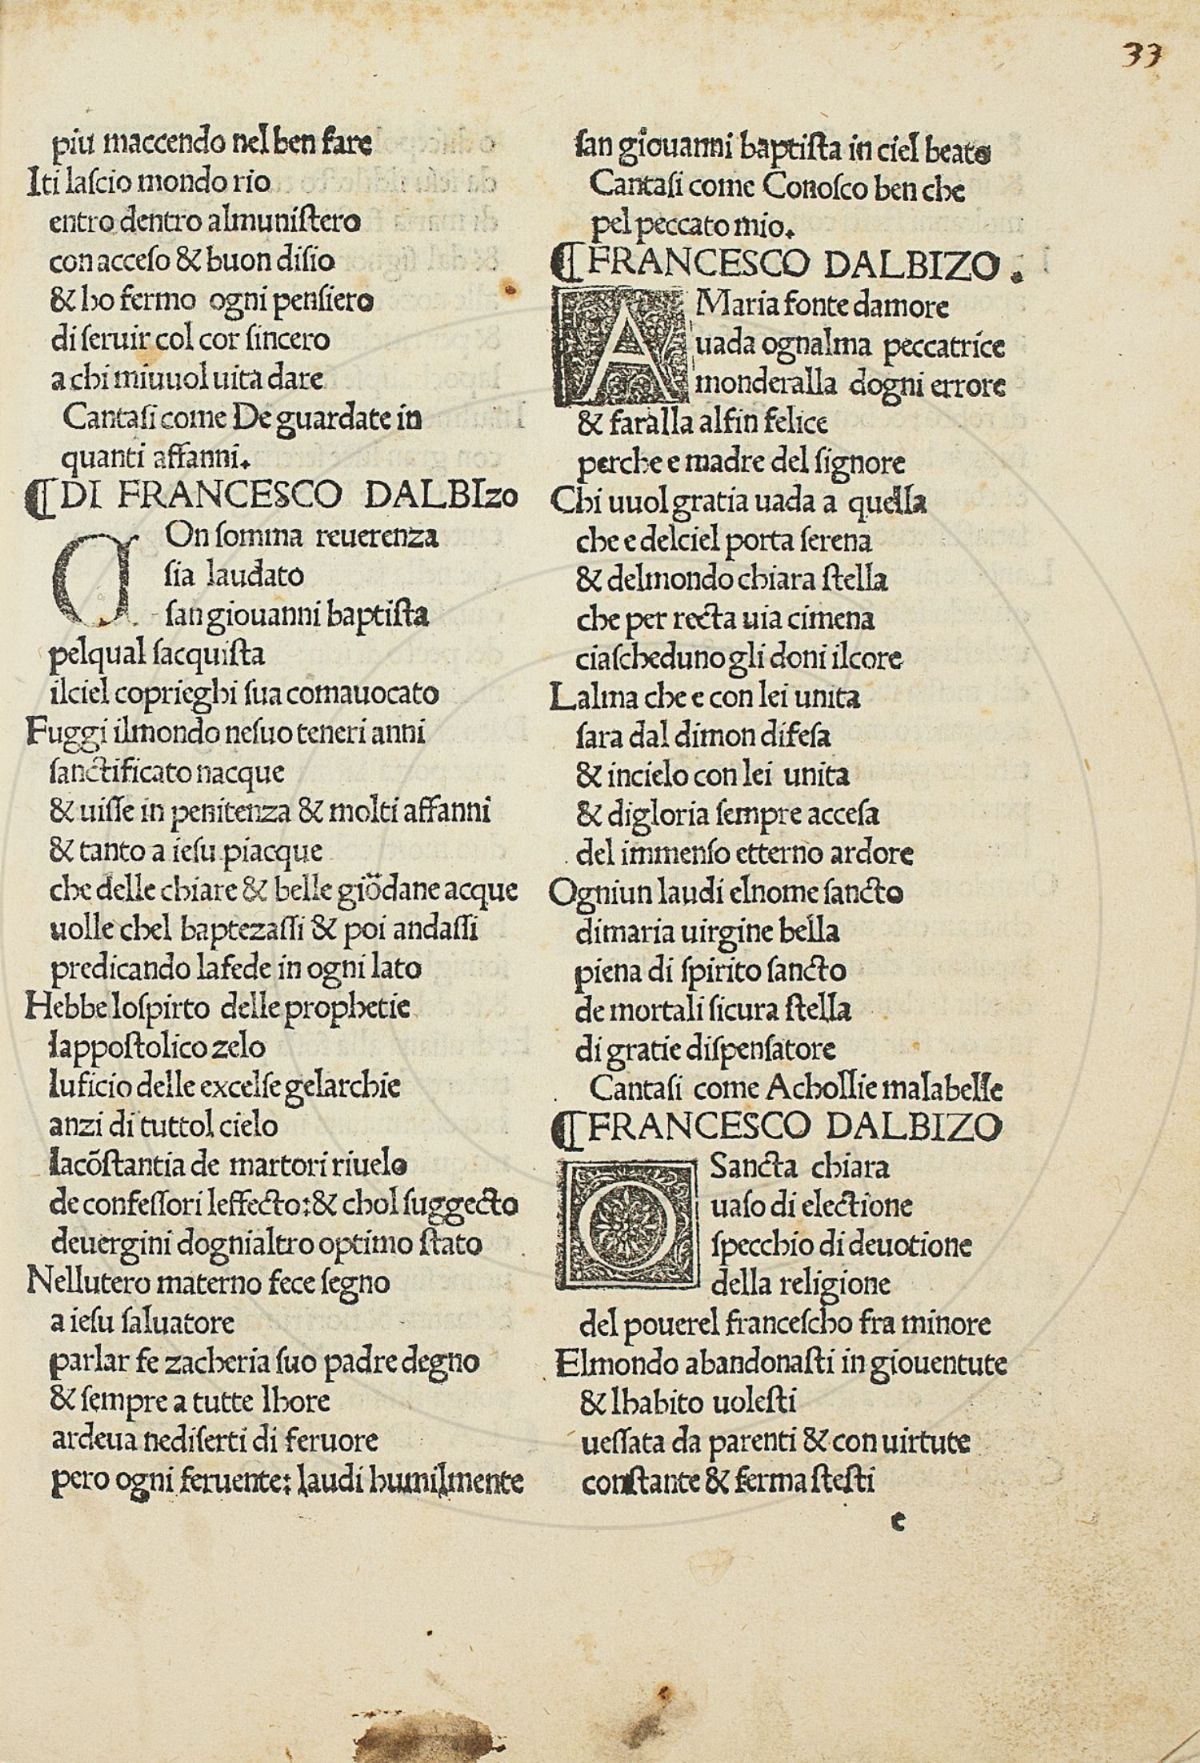 33
piu maccendo nel ben fare
Iti lascio mondo rio
entro dentro almunistero
con acceso & buon disio
& ho fermo ogni pensiero
di seruir col cor sincero
a chi miuuol uita dare
Cantasi come De guardate in
quanti affanni.
¶DI FRANCESCO DALBIzo
COn somma reuerenza
sia laudato
san giouanni baptista
pelqual sacquista
ilciel coprieghi sua comauocato
Fuggi ilmondo nesuo teneri anni
sanctificato nacque
& uisse in penitenza & molti affanni
& tanto a iesu piacque
che delle chiare & belle giõdane acque
uolle chel baptezassi & poi andassi
predicando lafede in ogni lato
Hebbe lospirto delle prophetie
lappostolico zelo
luficio delle excelse gelarchie
anzi di tuttol cielo
lacõstantia de martori riuelo
de confessori leffecto:& chol suggecto
deuergini dognialtro optimo stato
Nellutero materno fece segno
a iesu saluatore
parlar fe zacheria suo padre degno
& sempre a tutte lhore
ardeua nediserti di feruore
pero ogni feruente: laudi humilmente
san giouanni baptista in ciel beato
Cantasi come Conosco ben che
pel peccato mio.
¶FRANCESCO DALBIZO.
A Maria fonte damore
uada ognalma peccatrice
monderalla dogni errore
& faralla alfin felice
perche e madre del signore
Chi uuol gratia uada a quella
che e delciel porta serena
& delmondo chiara stella
che per recta uia cimena
ciascheduno gli doni ilcore
Lalma che e con lei unita
sara dal dimon difesa
& incielo con lei unita
& digloria sempre accesa
del immenso etterno ardore
Ogniun laudi elnome sancto
dimaria uirgine bella
piena di spirito sancto
de mortali sicura stella
di gratie dispensatore
Cantasi come Achollie malabelle
¶FRANCESCO DALBIZO
O Sancta chiara
uaso di electione
specchio di deuotione
della religione
del pouerel francescho fra minore
Elmondo abandonasti in giouentute
& lhabito uolesti
uessata da parenti & con uirtute
constante & ferma stesti
e